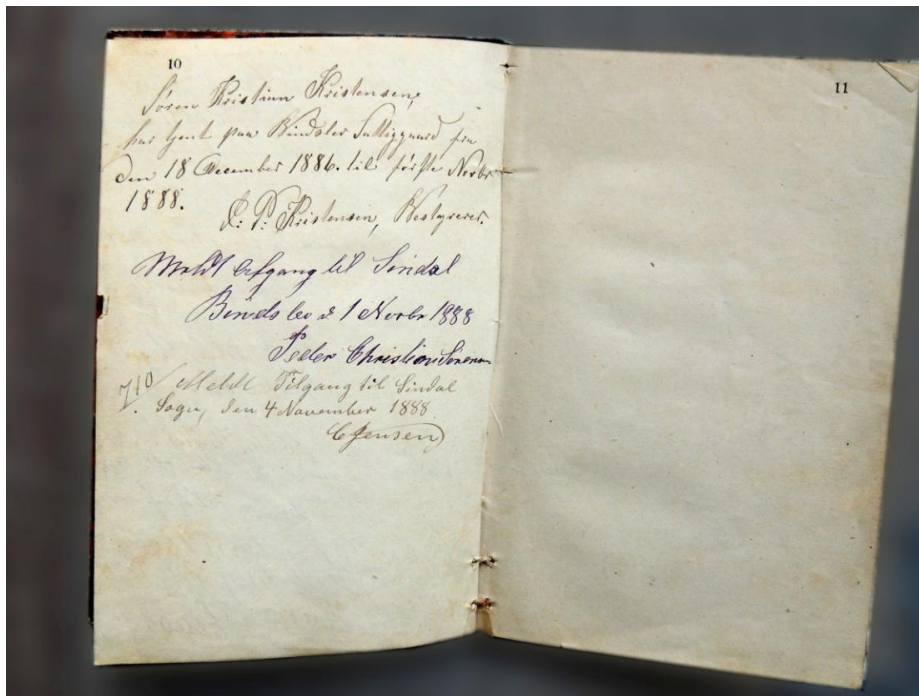 10
Søren Kristian Kristensen,
har tjent paa Bindslev Fattiggaard fra
den 18 December 1886. til første Novbr
1888.
P: Kristensen, Bestyrer.
Meldt Afgang til Sindal
Bindslev d 1 Novbr 1888
Peder Christian Sørensen
710/ Meldt Tilgang til Sindal
Sogn, den 4 November 1888.
C Jensen
11